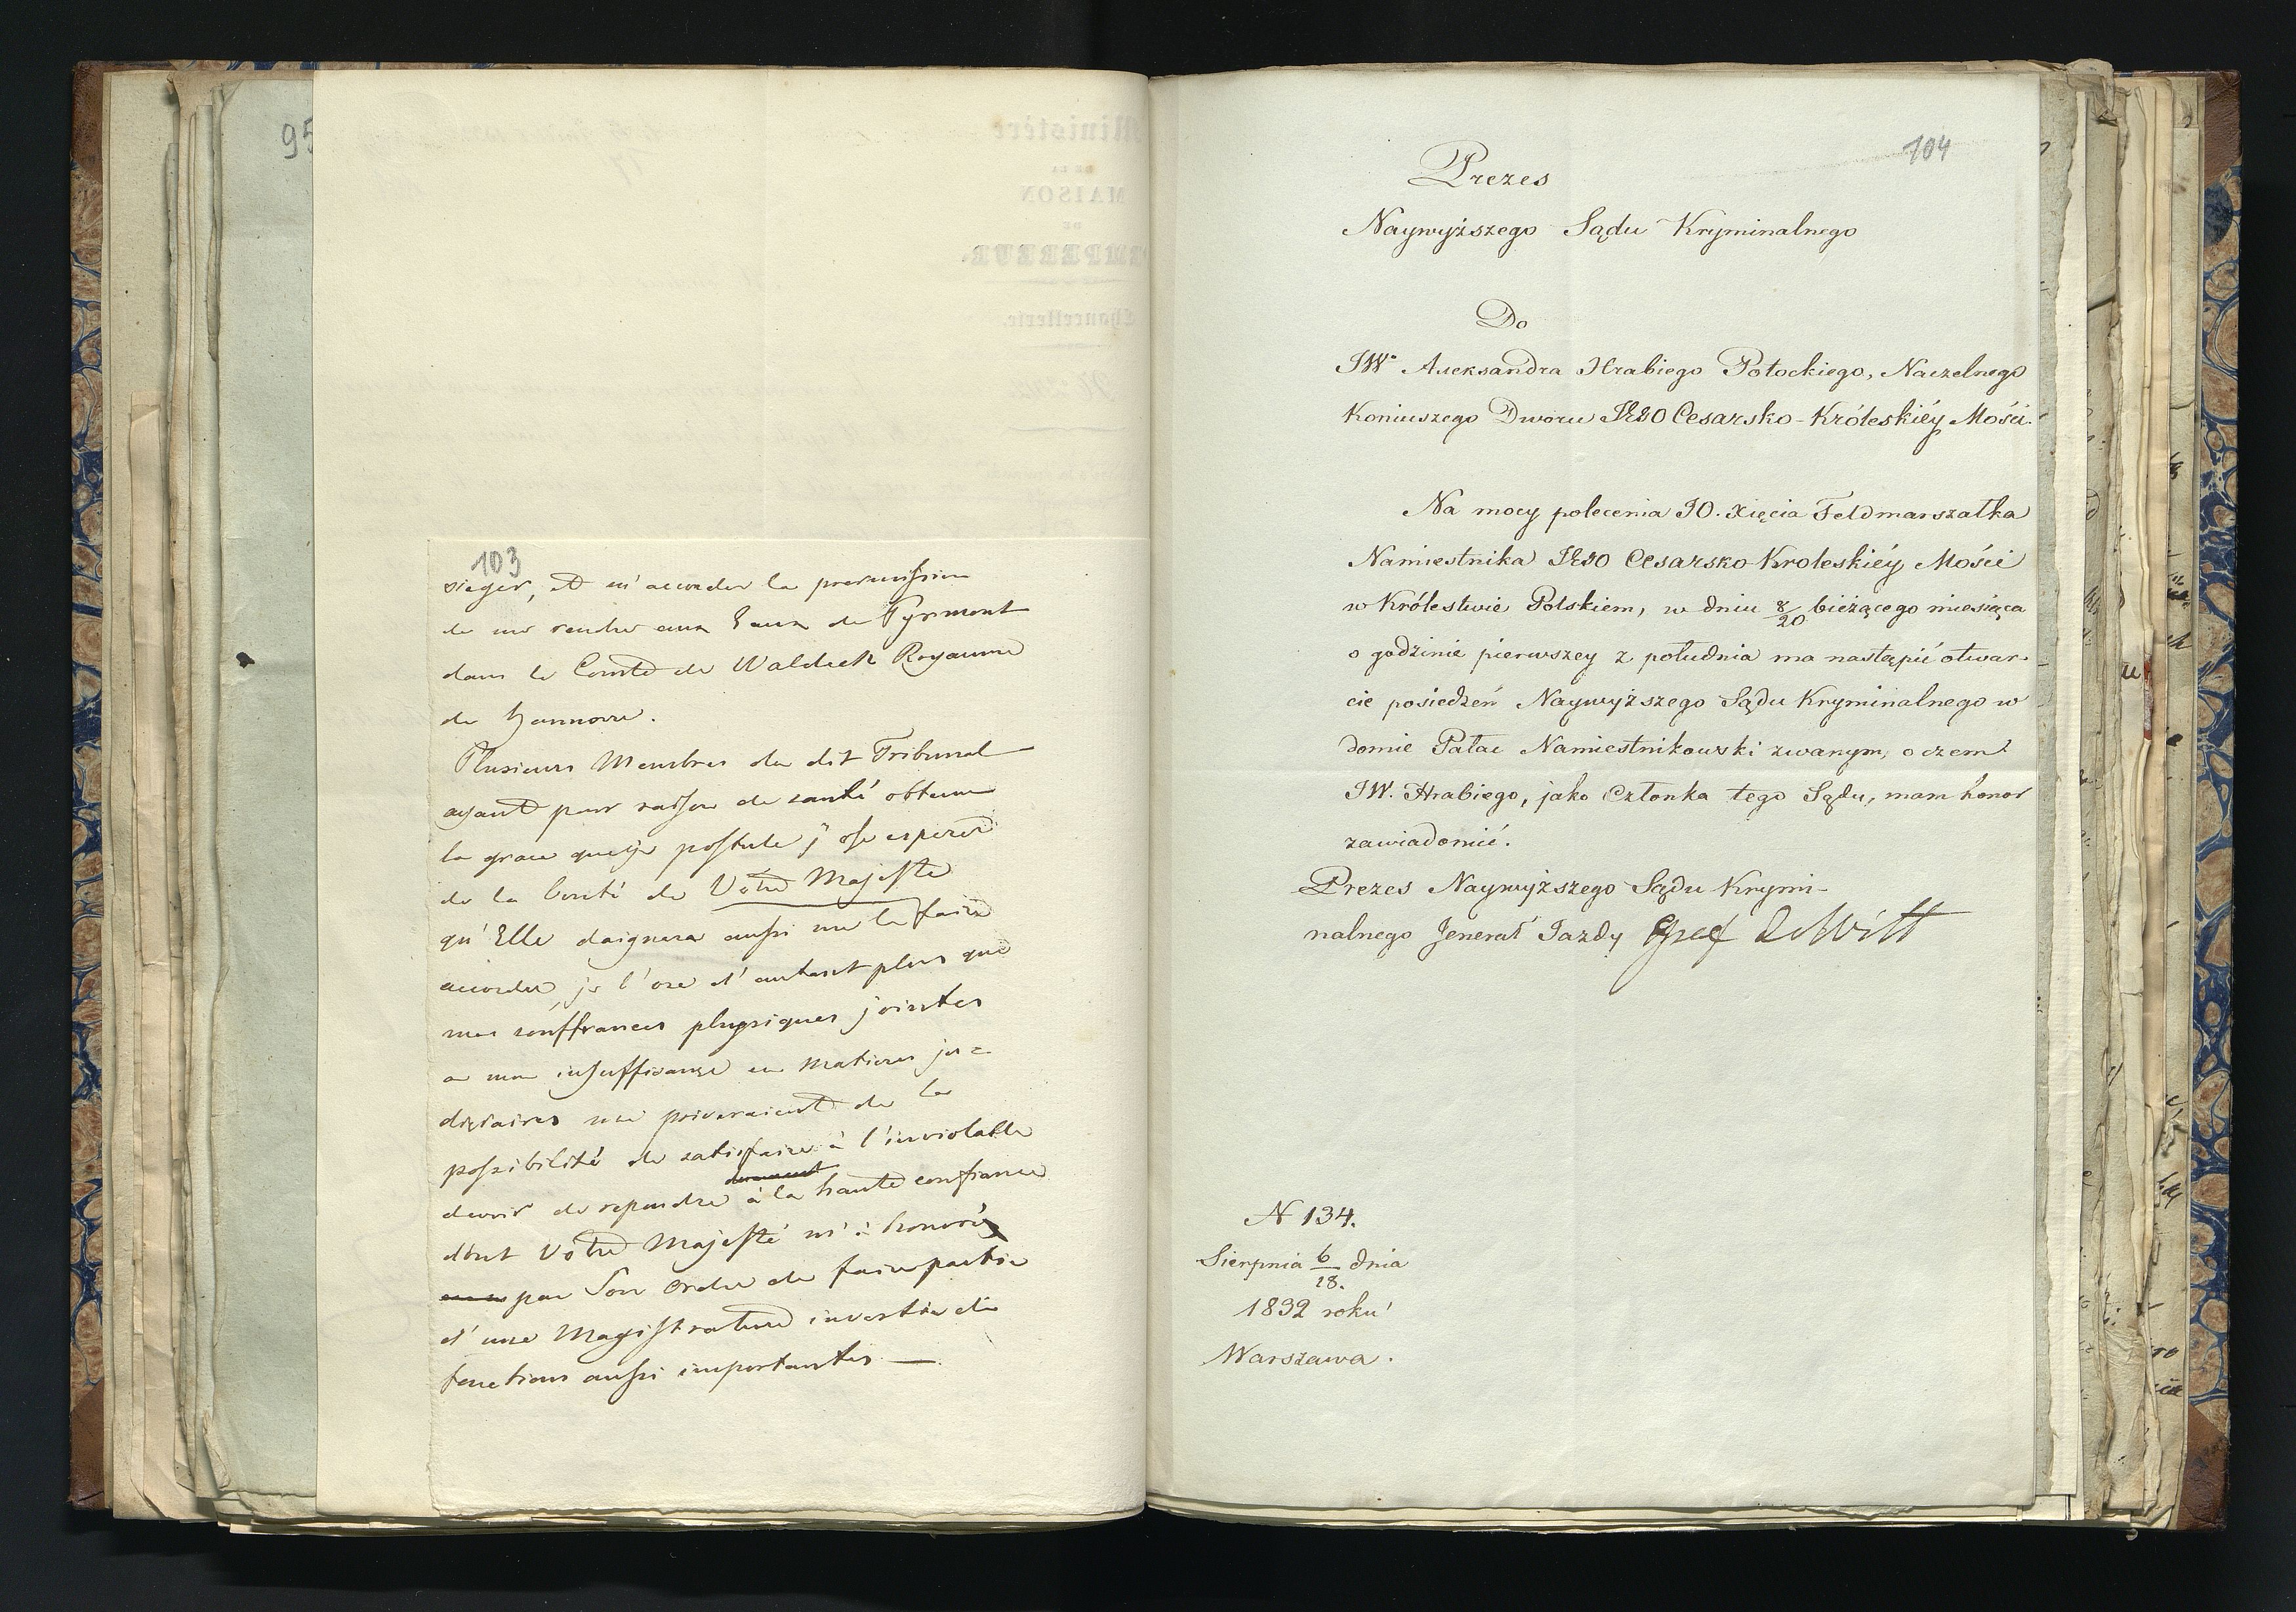 95
103
sieger, et m'accorder la premission
de me rendre aux Eaux de Pyrmont
dans le Comté de Waldeck Royaume
de Hannovre.
Plusieurs Membres du dit Tribunal
ayant pour raison de santé obtenu
la grace que je postule j'ose esperer
de la bonté de Votre Majesté
qu'Elle daignera aussi me la faire
accorder, je l'ose d'autant plus que
mes souffrances physiques jointes
a mon insuffisance en matieres ju=
diciaires me priveraient de la
possibilité de satisfaire à l'inviolable
devoir de repondre à la haute confiance
dont Votre Majesté m'à honoré
par Son Ordre de faire partie
d'une Magistrature investie de
fonctions aussi importantes —
104
Prezes
Naywyższego Sądu Kryminalnego
Do
JWo Alexandra Hrabiego Potockiego, Naczelnego
Koniuszego Dworu JEGO Cesarsko-Króleskiéy Mości.
Na mocy polecenia JO. Xięcia Feldmarszałka
Namiestnika JEGO Cesarsko Kroleskiéy Mości
w Królestwie Polskiem, w dniu 8/20 bieżącego miesiąca
o godzinie pierwszey z południa ma nastąpić otwar-
cie posiedzeń Naywyższego Sądu Kryminalnego w
domie Pałac Namiestnikowski zwanym, o czem
JW. Hrabiego, jako Członka tego Sądu, mam honor
zawiadomić.
Prezes Naywyższego Sądu Krymi-
nalnego Jenerał Jazdy Graf de Witt
N 134.
Sierpnia 6/18. dnia
1832 roku
Warszawa.